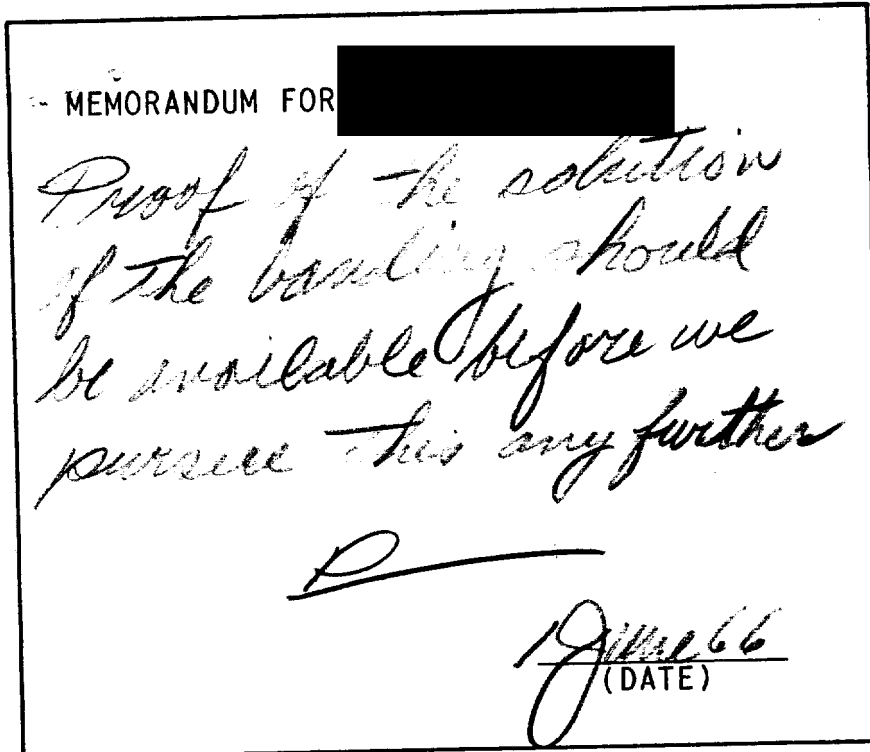 MEMORANDUM FOR
Proof of the solution
of the banding should
be available before we
pursue this any further
P
1 June 66
(DATE)